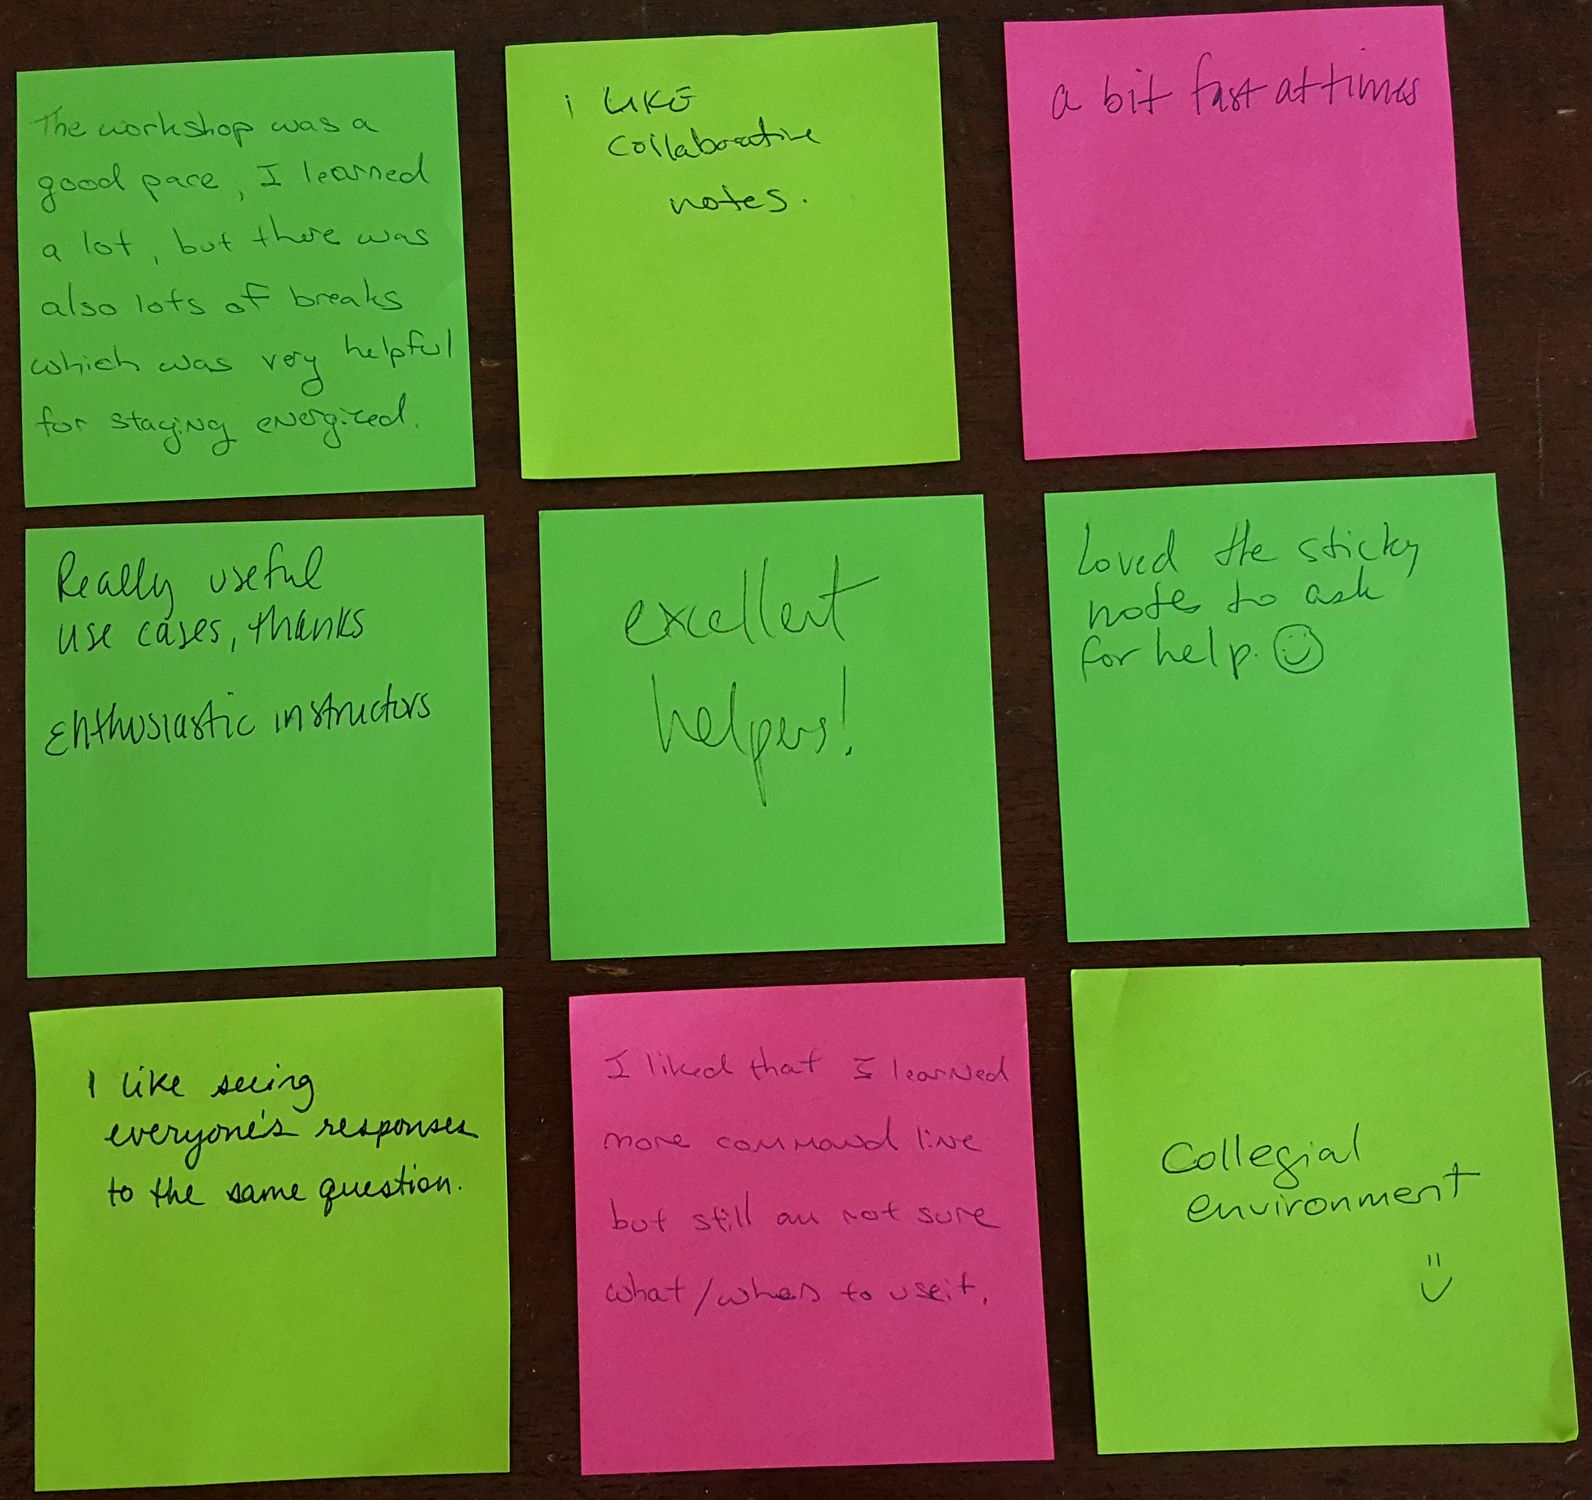 The workshop was a
good pace, I learned
a lot, but there was
also lots of breaks
which was very helpful
for staying energized.
i LIKE
collaborative
notes.
a bit fast at times
Really useful
use cases, thanks
Enthusiastic instructors
excellent
helpers!
Loved the sticky
notes to ask
for help. ☺
I like seeing
everyone's responses
to the same question.
I liked that I learned
more command line
but still am not sure
what/when to use it.
Collegial
environment